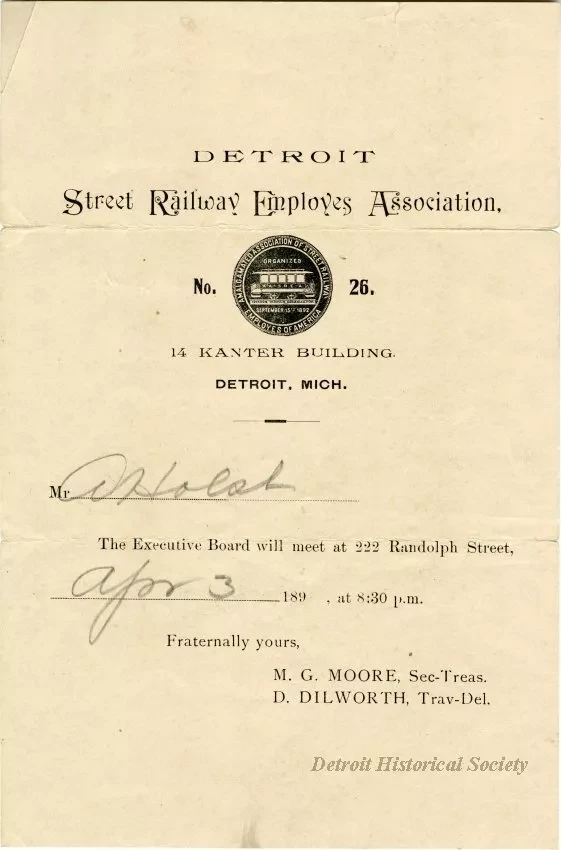 DETROIT
Street Railway Employes Association,
AMALGAMATED ASSOCIATION OF STREET RAILWAY
ORGANIZED
SEPTEMBER 15TH 1892
EMPLOYES OF AMERICA
No. 26.
14 KANTER BUILDING.
DETROIT, MICH.
Mr A Holst
The Executive Board will meet at 222 Randolph Street,
Apr 3 189 , at 8:30 p.m.
Fraternally yours,
M. G. MOORE, Sec-Treas.
D. DILWORTH, Trav-Del.
Detroit Historical Society